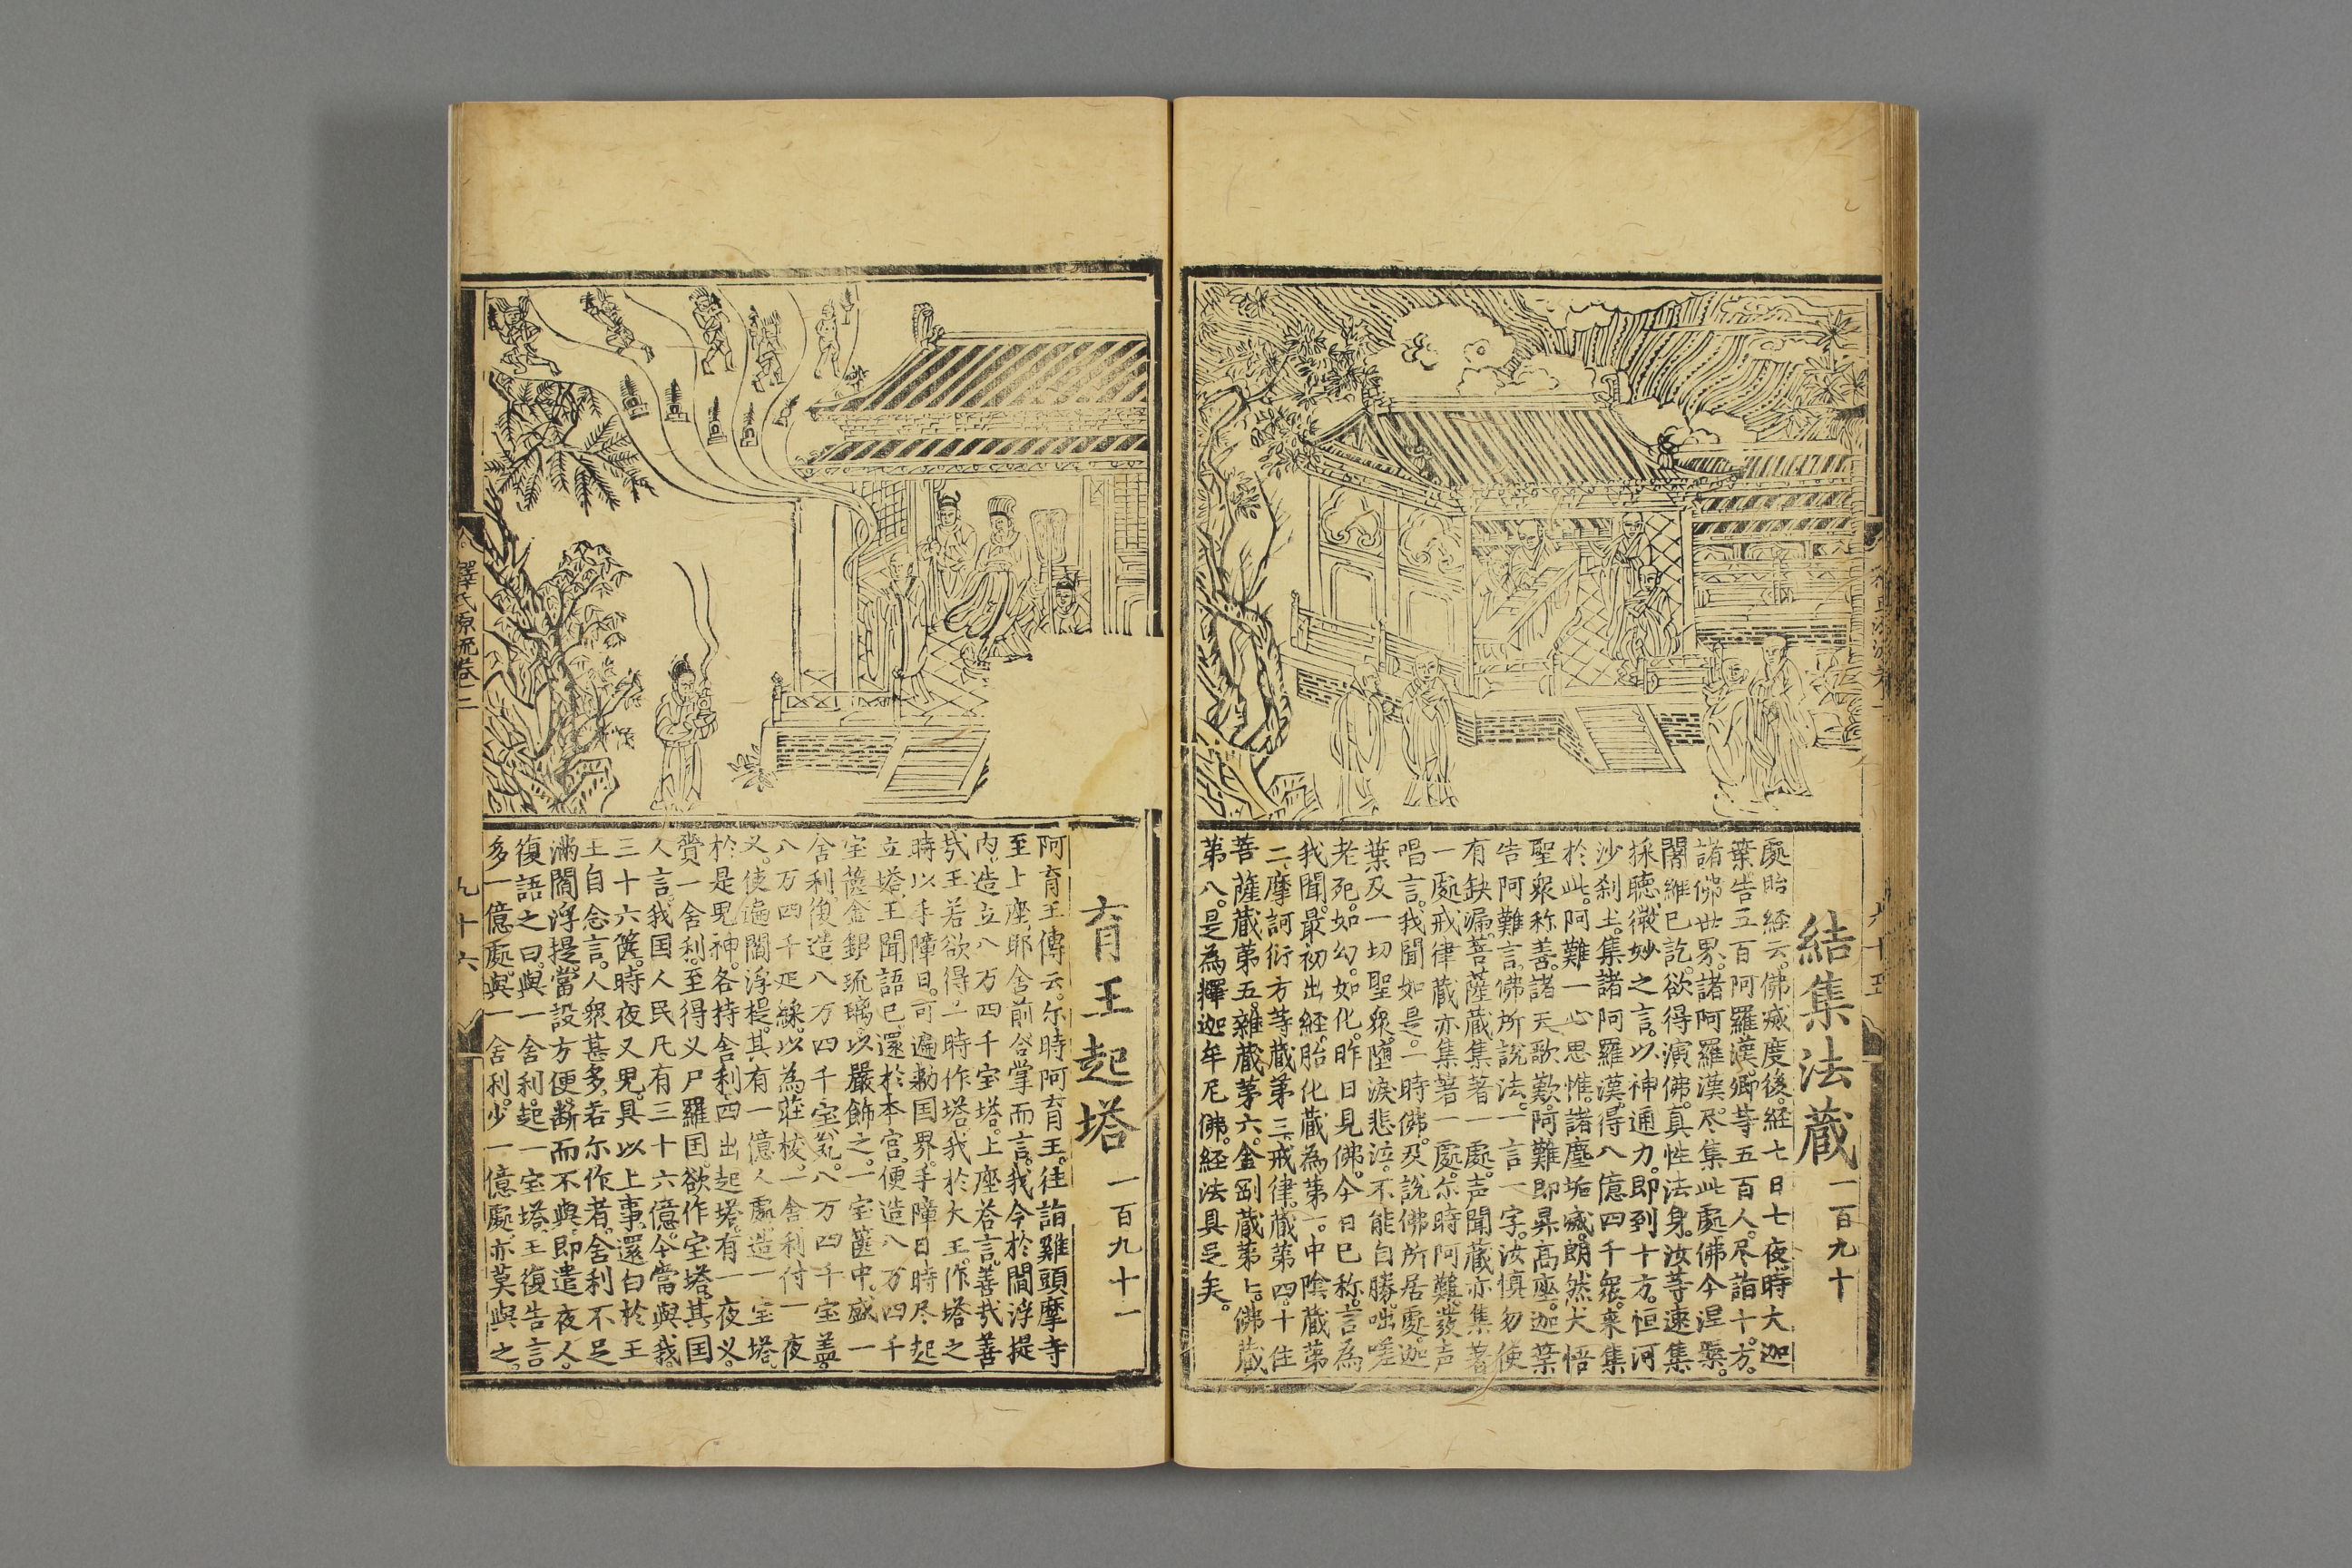 結集法蔵 一百九十
處胎経云。佛㓕度後。経七日七夜。時大迦
葉。告五百阿羅漢。卿等五百人。尽詣十方。
諸佛世界。諸阿羅漢。尽集此處。佛今涅槃。
闍維已訖。欲得演佛。真性法身。汝等速集
採聴。微妙之言。以神通力。即到十方。恒河
沙刹土。集諸阿羅漢。得八億四千衆。来集
於此。阿難一心思惟。諸塵垢㓕。朗然大悟
聖衆称善。諸天歌歎。阿難即昇高座。迦葉
告阿難言。佛所說法。一言一字。汝慎勿使
有缺漏。菩薩蔵集著一處。声聞蔵亦集著
一處。戒律蔵亦集著一處。尔時阿難。發声
唱言。我聞如是。一時佛。及說佛所居處。迦
葉及一切聖衆。墮淚悲泣。不能自勝。咄嗟
老死。如幻。如化。昨日見佛。今日已称。言為
我聞。最初出経。胎化蔵為第一。中陰蔵第
二。摩訶衍方等蔵第三。戒律蔵第四。十住
菩薩蔵第五。雜蔵第六。金剛蔵第七。佛蔵
第八。是為釋迦牟尼佛。経法具足矣。
育王起塔 一百九十一
阿育王傳云。尔時阿育王。往詣雞頭摩寺
至上座。耶舍前。合掌而言。我今於閻浮提
内。造立八万四千宝塔。上座荅言。善哉善
哉。王若欲得。一時作塔。我於大王。作塔之
時。以手障日。可遍勅国界。手障日時。尽起
立塔。王聞語已。還於本宮。便造八万四千
宝篋。金銀琉璃。以嚴飾之。一宝篋中。盛一
舍利。復造八万四千宝瓮。八万四千宝盖。
八万四千疋綵。以為莊校。一舍利付一夜
义。使遍閻浮提。其有一億人處。造一宝塔。
於是鬼神。各持舍利。四出起塔。有一夜义。
賷一舍利。至得义尸羅国。欲作宝塔。其国
人言。我国人民。凡有三十六億。今當與我。
三十六篋。時夜又鬼。具以上事。還白於王
王自念言。人衆甚多。若尔作者。舍利不足
滿閻浮提。當設方便。断而不與。即遣夜人。
復語之曰。與一舍利。起一宝塔。王復告言
多一億處。與一舍利。少一億處。亦莫與之。
釋氏源流卷二
九十六